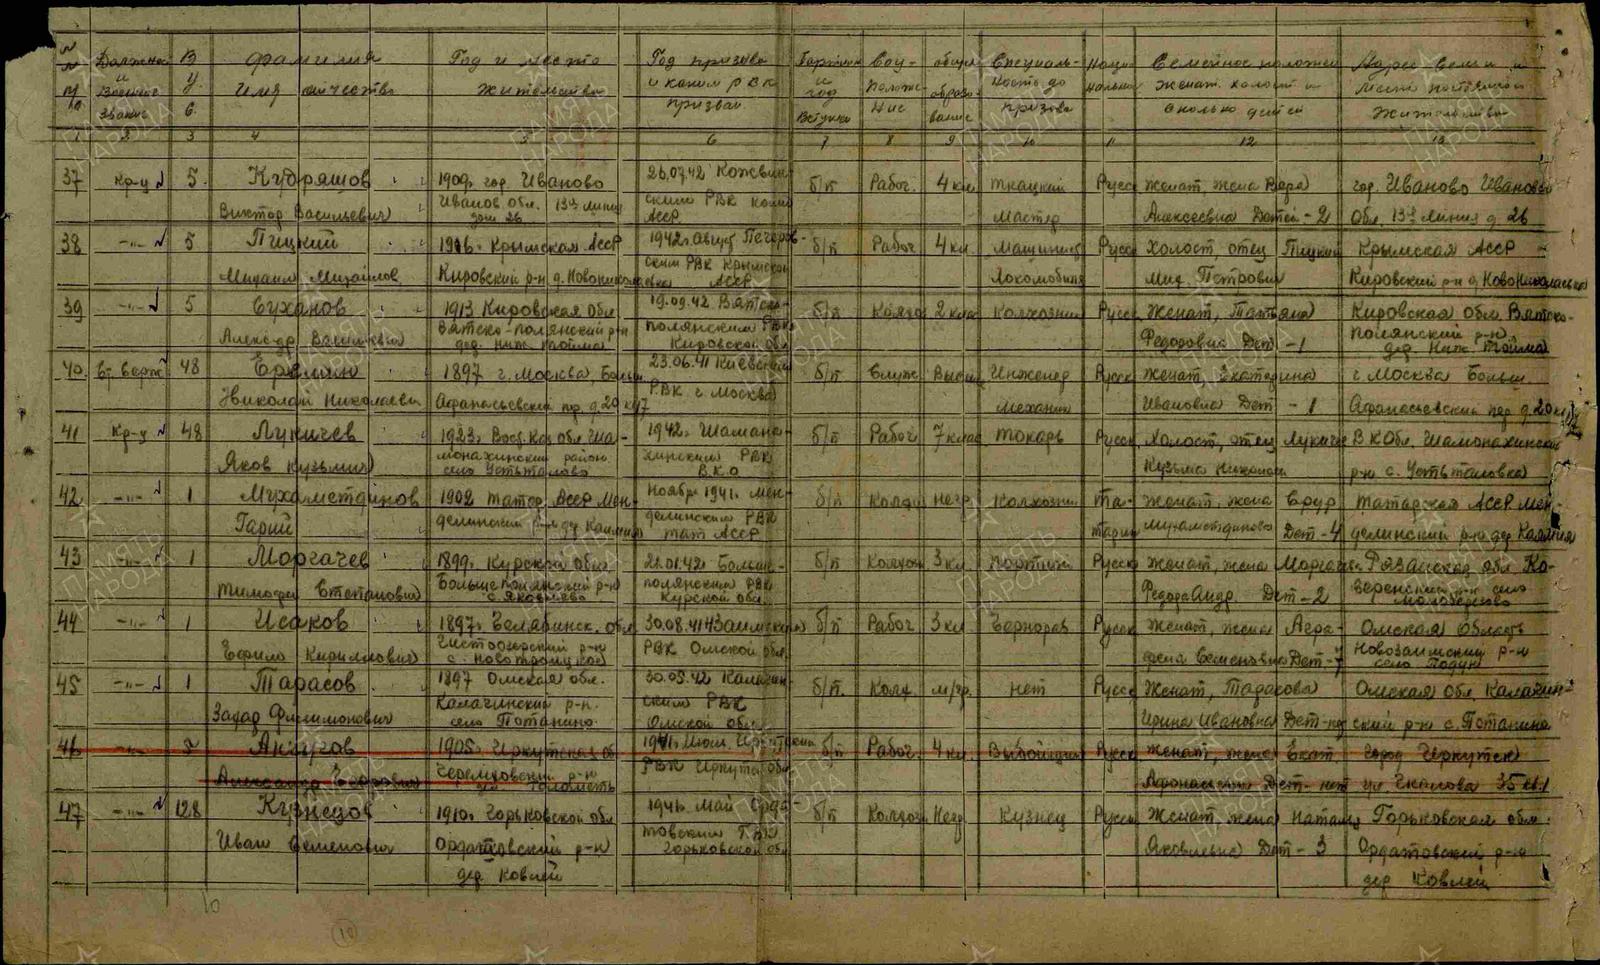 №№ Должнос В Фамилия Год и место Год призыва Партийн Соц- общее Специаль- Нацио- Семейное положен Адрес семьи и
п/п и у. Имя отчество жительства и каким РВК и год Полож- образо- ность до нальнос женат холост и место постоянного
Военное звание с. призван Вступл ние вание призыва сколько детей жительства
1 2 3 4 5 6 7 8 9 10 11 12 13
37 кр-ц 5. Кудряшов 1909г гор. Иваново 26.07.42 Кожвин- б/п Рабоч. 4 кл. ткацкий Русск женат жена Вера гор. Иваново Ивановск
Виктор Васильевич Иванов обл. 13я линия дом 26 ским РВК коми АССР мастер Алексеевна Детей-2 обл. 13я линия д. 26
38 -"- 5 Пицкий 1916г. Крымская АССР 1942г август Печеров- б/п Рабоч 4 кл. машинист Русск холост, отец Пицкий Крымская АССР
Михаил Михайлов Кировский р-н д. Новониколаевка ским РВК Крымской АССР локомобиля Мих. Петрович Кировский р-н д. Новониколаевка
39 -"- 5 Суханов 1913 Кировская обл 19.09.42 Вятско- б/п Колхоз 2 клас Колхозник Русск Женат, Татьяна Кировская обл. Вятско-
Александр Васильевич Вятско-полянский р-н дер. Ниж. Тойма полянским РВК Кировской обл Федоровна Дет-1 полянский р-н дер. Ниж. Тойма
40. Ст. Серж 48 Еремин 1897 г. Москва, Больш. 23.06.41 Киевским б/п Служ. Высш. Инженер Русск женат, Екатерина г. Москва Больш.
Николай Николаевич Афанасьевский пер. д. 20 кв 7 РВК г. Москва механик Ивановна Дет-1 Афанасьевский пер д. 20 кв
41 кр-ц 48 Лукичев 1923г. Вост. Каз обл. Ша- 1942г. Шамана- б/п Рабоч 7 клас токарь Русск холост, отец Лукичев В К Обл. Шамонахинский
Яков Кузьмич монахинский район село Устьталовка хинским РВК В.К.О Кузьма р-н с. Устьталовка
42 -"- 1 Мухаметдинов 1902 Татар. АССР Мен- Ноябрь 1941г. Мен- б/п Колхоз негр. Колхозник Та- женат, жена Татарская АССР Мен-
Гарий делинский р-н дер делинским РВК Тат АССР тарин Мухаметдинова Дет-4 делинский р-н дер
43 -"- 1 Моргачев 1899г. Курской обл. 21.01.42 Больше- б/п Колхозн 3 кл. Портной Русск женат, жена Моргачева Рязанская обл Ко-
Тимофей Степанович Большеполянский р-н с. Яковлево полянским РВК Курской обл. Федора Андр. Дет-2 веренский р-н село
44 -"- 1 Исаков 1897г. Челябинск. обл 30.08.41 Заимским б/п Рабоч 3 кл Чернораб Русск женат, жена Агра- Омская Область
Ефим Кириллович Чистоозерский р-н с. Новотроицкое РВК Омской обл. фена Семеновна Дет-7 Новозаимский р-н село
45 -"- 1 Тарасов 1897 Омская обл. 30.05.42 Калачин- б/п. Колх. м/гр. нет Русск женат, Тарасова Омская обл Калачин-
Захар Филимонович Калачинский р-н. село Потанино ским РВК Омской обл. Ирина Ивановна Дет-нет ский р-н с. Потанина
46 -"- Анчугов 1905г. Иркутская об 1941г. Июль Иркутским б/п Рабоч. 4 кл. Выбойщик Русск женат, жена Екат. город Иркутск
Александр Егорович Черемховский р-н РВК Иркутск обл Афонасьевна Дет-нет ул Чкалова 35 кв.1
47 -"- 128 Кузнецов 1910г. Горьковской обл 1941г. Май Орда- б/п Колхозн Негр. Кузнец Русск Женат, жена Наталья Горьковская обл.
Иван Семенович Ордатовский р-н товским РВК Горьковской обл Яковлевна Дет-3 Ордатовский р-н
дер. Ковлей дер Ковлей
10
ПАМЯТЬ НАРОДА